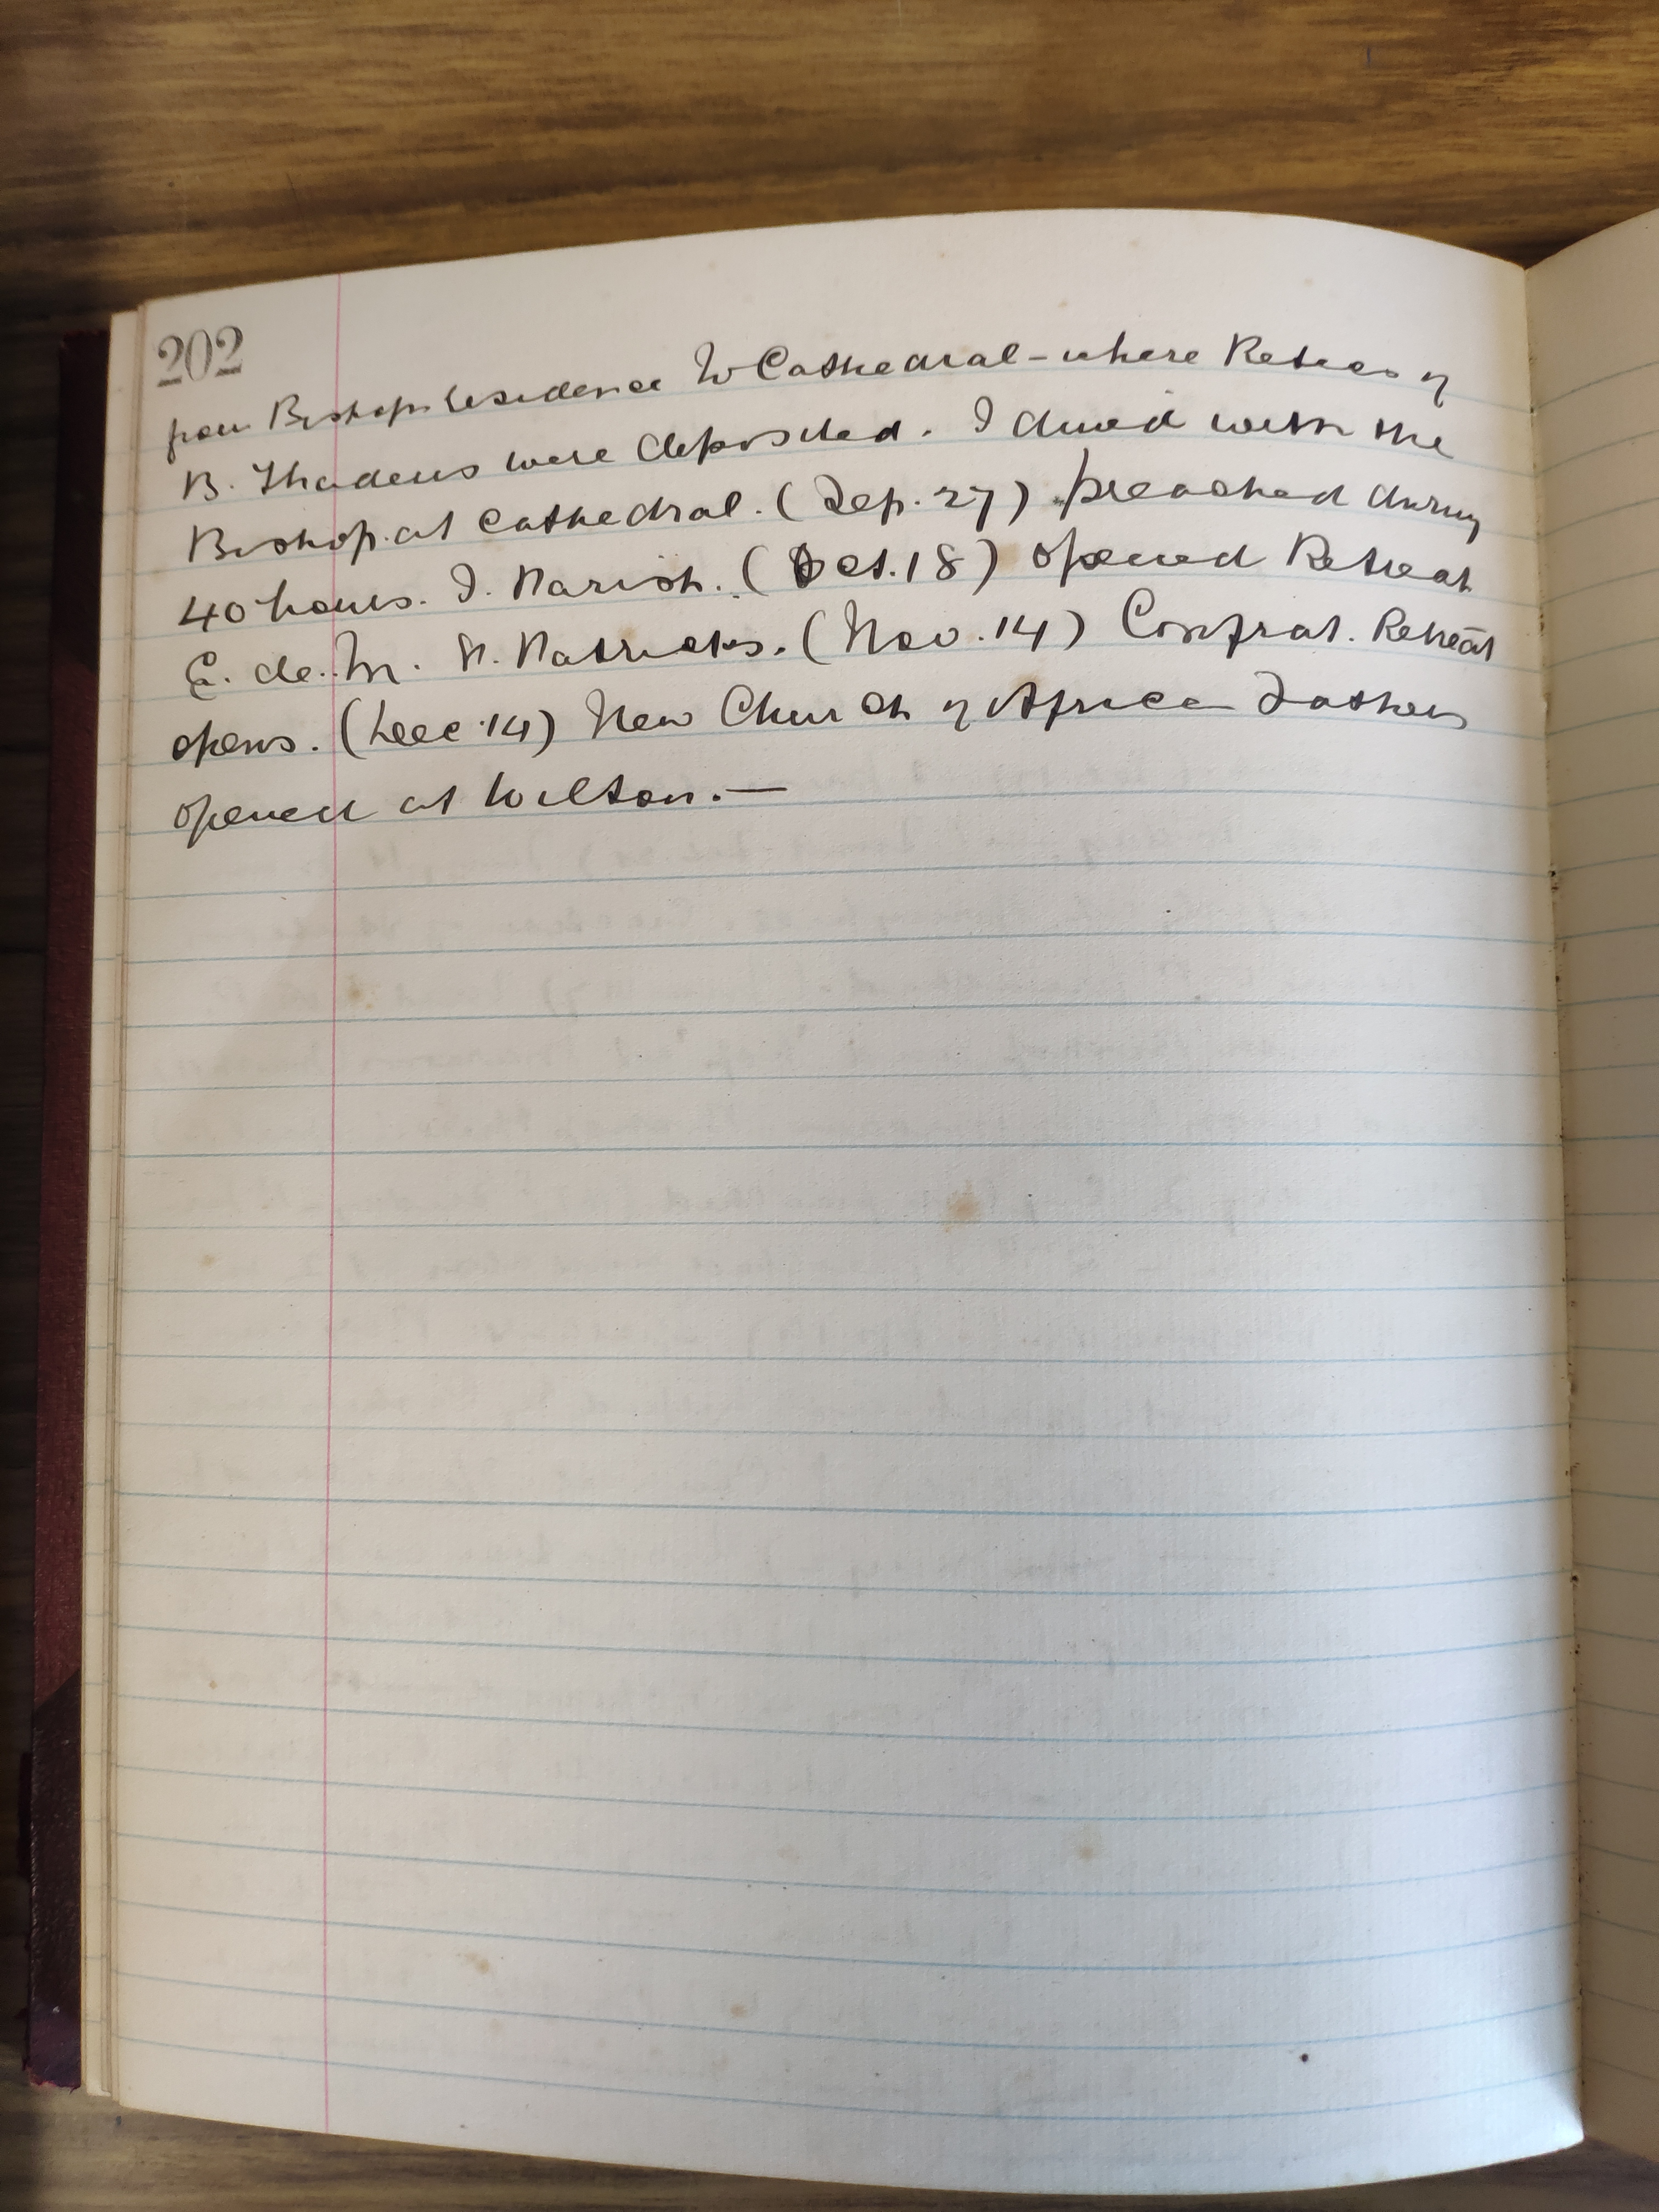 202
from Bishop's residence to Cathedral - where Relics of
B. Thadeus were deposited. I dined with the
Bishop. at Cathedral. (Sep. 27) preached during
40 hours. S. Parish. (Oct. 18) opened Retreat
E. de. M. S. Patricks. (Nov. 14) Confrat. Retreat
opens. (Dec 14) New Church of African Fathers
opened at Wilton. —